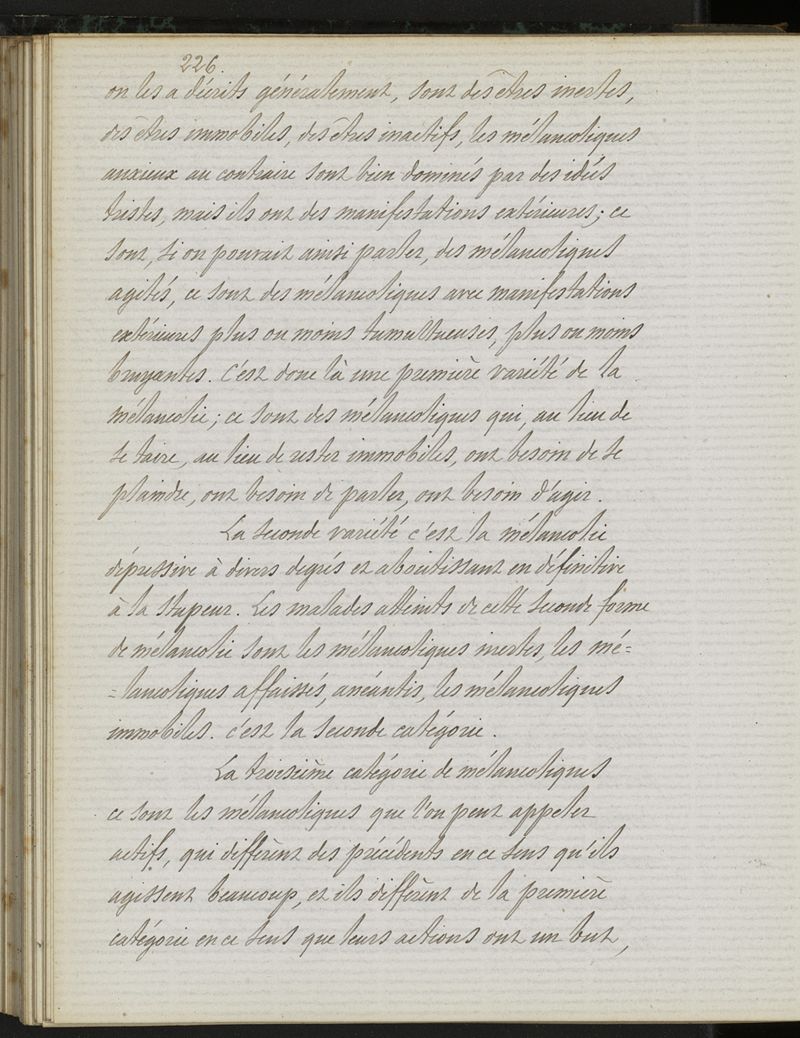 226
on les a décrits généralement, sont des êtres inertes,
des êtres immobiles, des êtres inactifs, les mélancoliques
anxieux au contraire sont bien dominés par des idées
tristes, mais ils ont des manifestations extérieures; ce
sont, si on pouvait ainsi parler, des mélancoliques
agités, ce sont des mélancoliques avec manifestations
extérieures plus ou moins tumultueuses, plus ou moins
bruyantes. C'est donc là une première variété de la
mélancolie; ce sont des mélancoliques qui, au lieu de
se taire, au lieu de rester immobiles, ont besoin de se
plaindre, ont besoin de parler, ont besoin d'agir.
La seconde variété c'est la mélancolie
dépressive à divers degrés et aboutissant en définitive
à la stupeur. Les malades atteints de cette seconde forme
de mélancolie sont les mélancoliques inertes, les mé=
=lancoliques affaissés, anéantis, les mélancoliques
immobiles. c'est la seconde catégorie.
La troisième catégorie de mélancoliques
ce sont les mélancoliques que l'on peut appeler
actifs, qui diffèrent des précédents en ce sens qu'ils
agissent beaucoup, et ils diffèrent de la première
catégorie en ce sens que leurs actions ont un but,